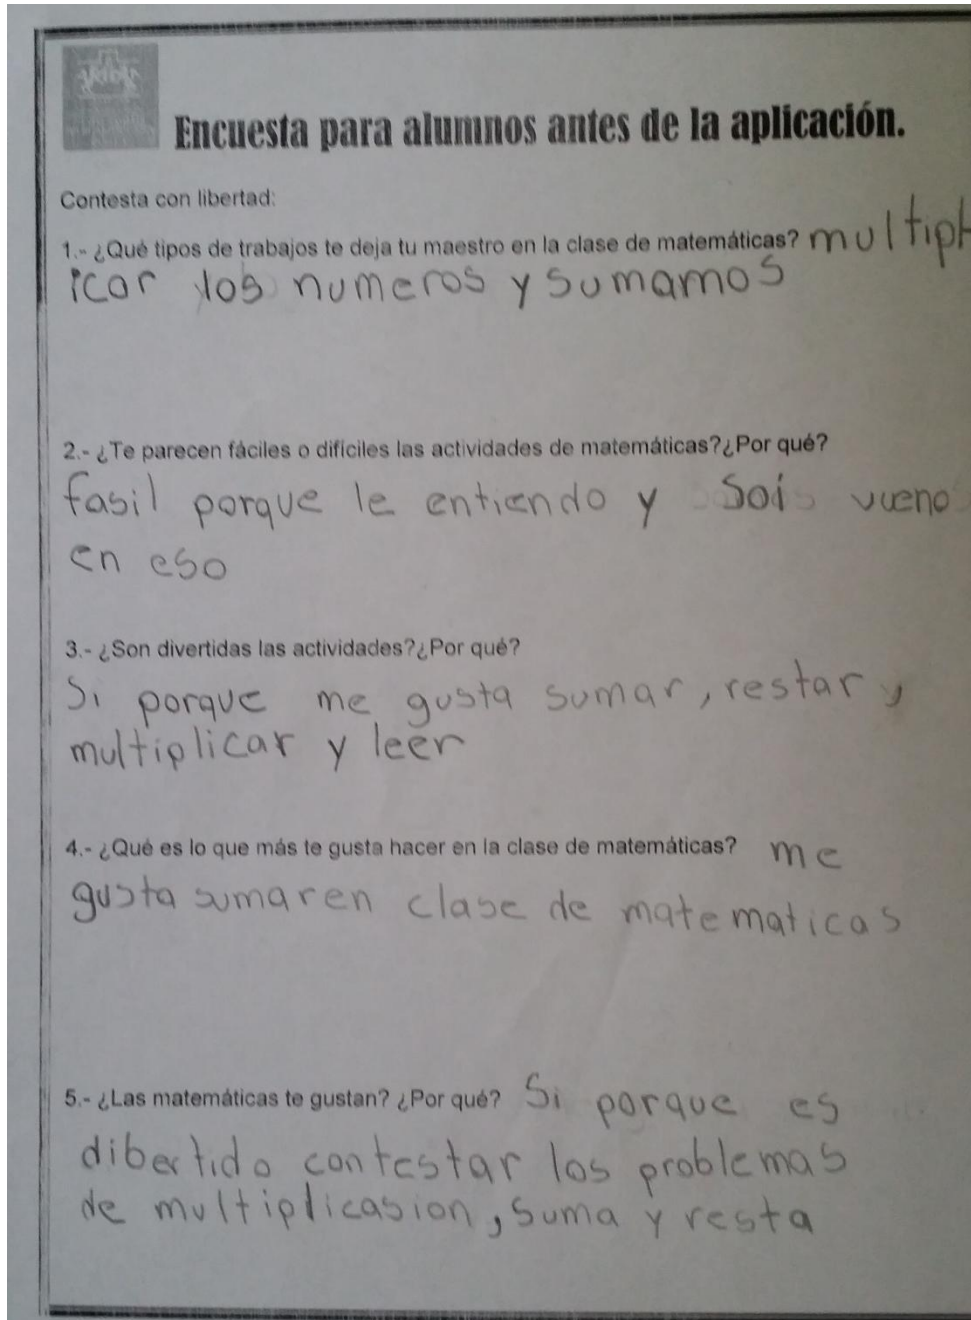 Encuesta para alumnos antes de la aplicación.
Contesta con libertad:
1.- ¿Qué tipos de trabajos te deja tu maestro en la clase de matemáticas? multipl
icar los numeros y sumamos
2.- ¿Te parecen fáciles o difíciles las actividades de matemáticas?¿Por qué?
fasil porque le entiendo y soi vueno
en eso
3.- ¿Son divertidas las actividades?¿Por qué?
Si porque me gusta sumar, restar y
multiplicar y leer
4.- ¿Qué es lo que más te gusta hacer en la clase de matemáticas? me
gusta sumar en clase de matematicas
5.- ¿Las matemáticas te gustan? ¿Por qué? Si porque es
dibertido contestar los problemas
de multiplicasion, suma y resta